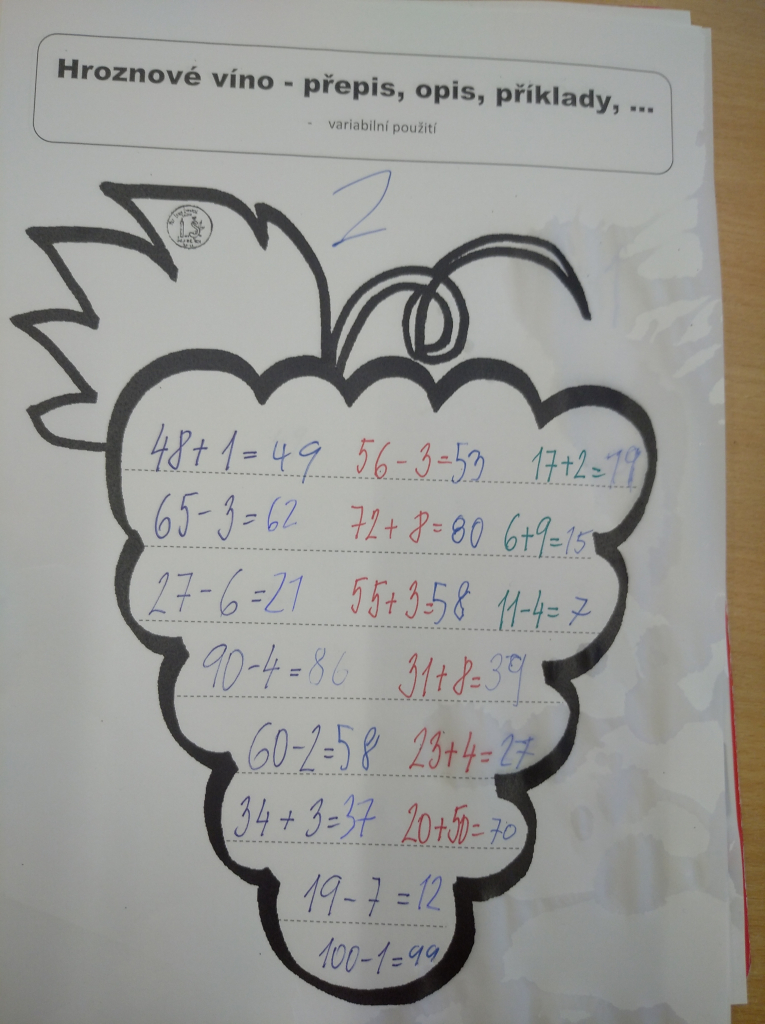 Hroznové víno - přepis, opis, příklady, ...
- variabilní použití
2
48+1=49 56-3=53 17+2=19
65-3=62 72+8=80 6+9=15
27-6=21 55+3=58 11-4=7
90-4=86 31+8=39
60-2=58 23+4=27
34+3=37 20+50=70
19-7=12
100-1=99